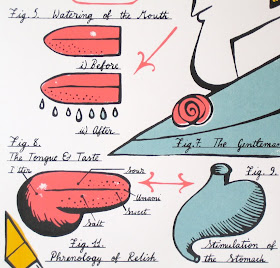 Fig. 5. Watering of the Mouth
i) Before
ii) After
Fig. 7. The Gentleman
Fig. 8.
The Tongue & Taste
Sour
Umami
Sweet
Salt
Fig. 9.
Stimulation of
the Stomach
Fig. 11.
Phrenology of Relish